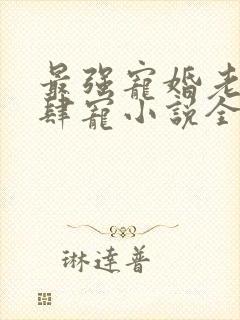 最强寵婚老
肆寵小説全
琳達普